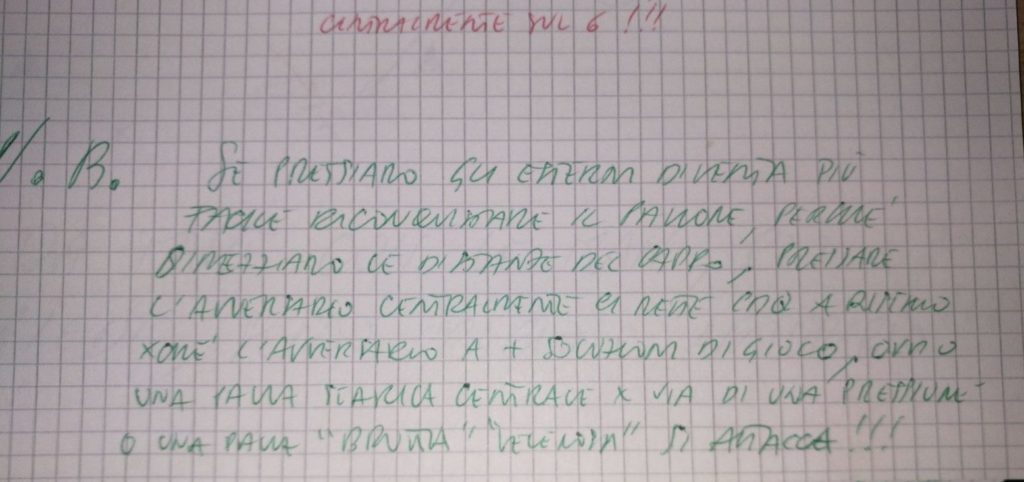 CENTRALMENTE SUL 6 !!!
N. B. SE PRESSIAMO GLI ESTERNI DIVENTA PIÙ
FACILE RICONQUISTARE IL PALLONE, PERCHE'
DIMEZZIAMO LE DISTANZE DEL CAMPO, PRESSARE
L'AVVERSARIO CENTRALMENTE CI METE A RISCHIO
XCHE' L'AVVERSARIO A + SOLUZIONI DI GIOCO,
UNA PALLA SCARICA CENTRALE X VIA DI UNA PRESSIONE
O UNA PALLA "BRUTTA" "VELENOSA" SI ATTACCA !!!